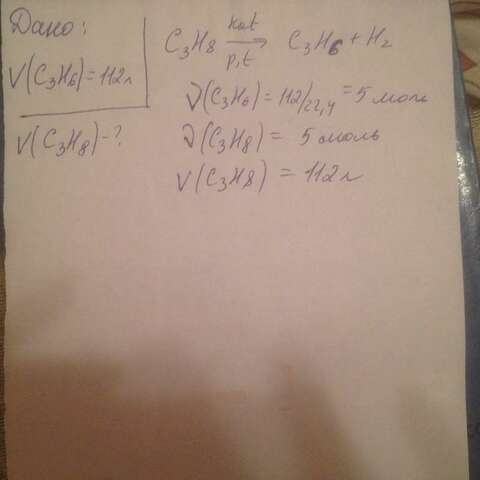 Дано:
V(C3H6)=112л
V(C3H8)-?
C3H8 kat p,t → C3H6 + H2
ν(C3H6)=112/22,4=5 моль
ν(C3H8)= 5 моль
V(C3H8)=112л